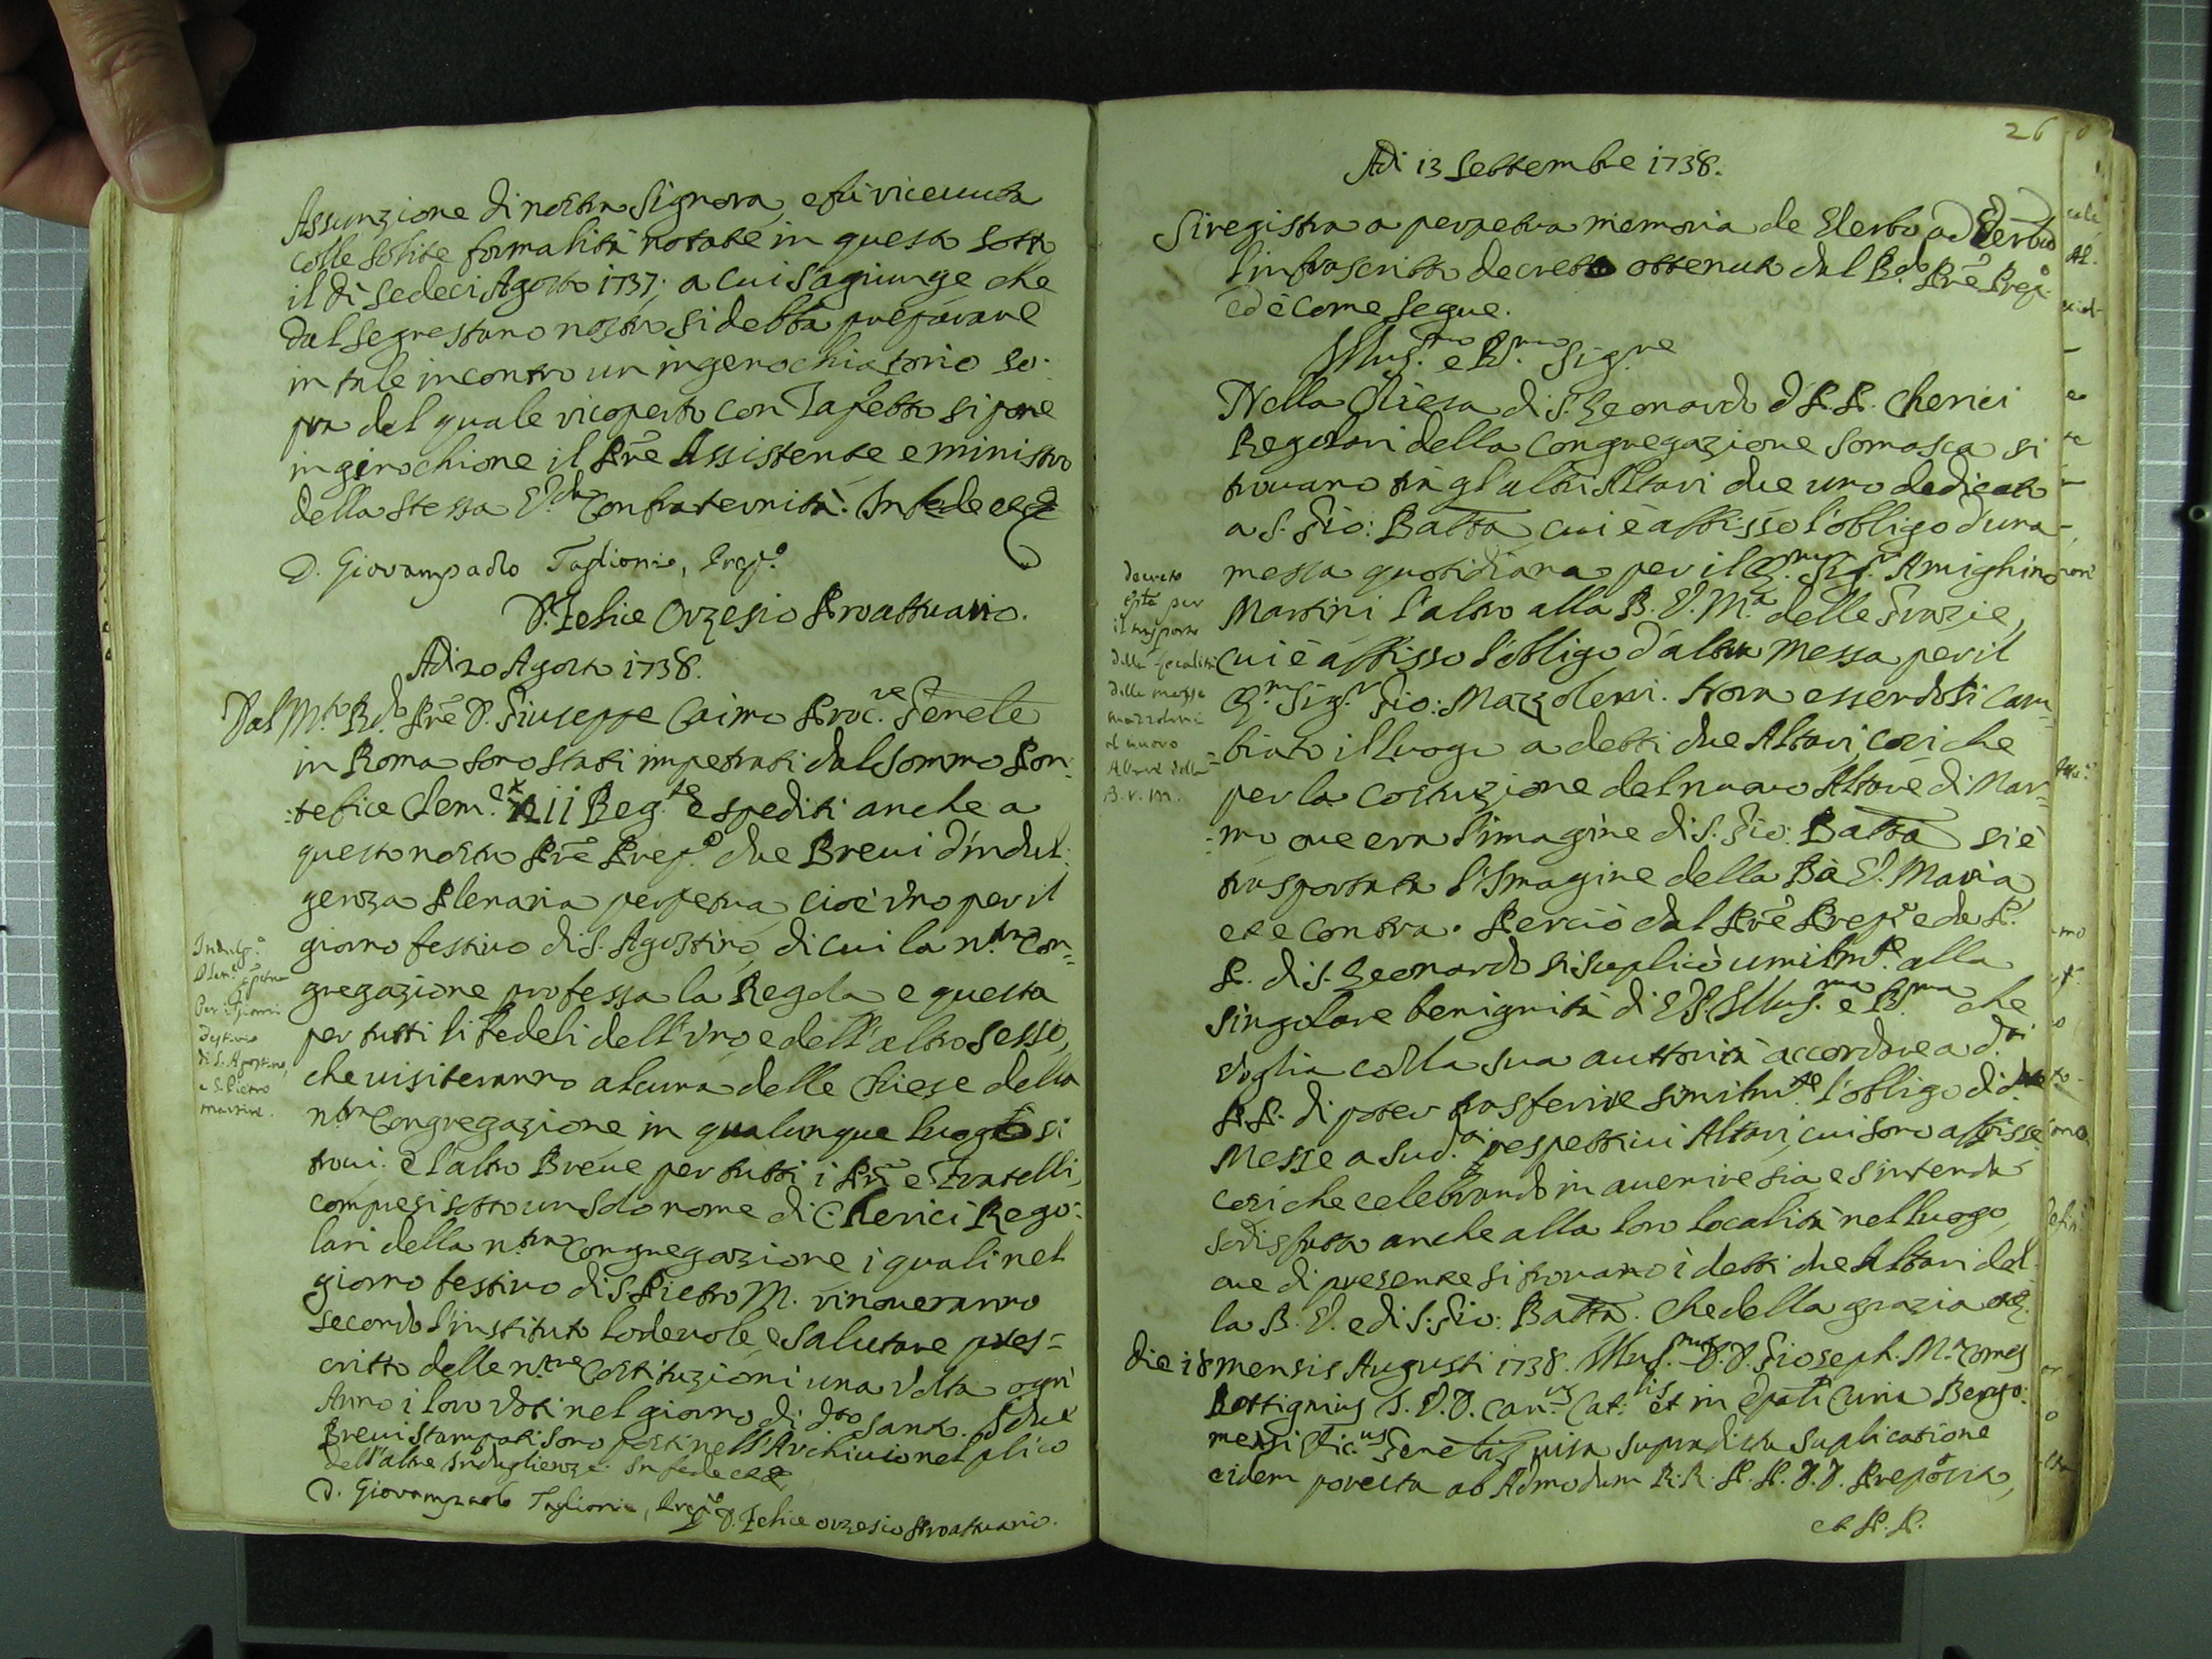 Assunzione di nostra Signora, e fù ricevuta
colle solite formalità notate in questo sotto
il dì sedeci Agosto 1737; a cui s'agiunge che
dal segrestano nostro si debba preparare
in tale incontro un ingenochiatorio so:
pra del quale ricoperto con Tapetto si pone
in ginochione il Prē Assistente e ministro
della stessa V.da Confraternità. In fede ec
D. Giovampaolo Taglionio, Prep.o
D. Felice Orzesio Proattuario.
Adi 20 Agosto 1738.
Dal M.to Rd.o Prē D. Giuseppe Caimo Proc.re Genele
in Roma sono stati impetrati dal Sommo Pon:
:tefice Clem.e XII Reg.te e spediti anche a
questo nostro Prē Prep.o due Brevi d'indul:
genza Plenaria perpetua cioè uno per il
giorno festivo di S. Agostino, di cui la n.tra Con=
gregazione professa la Regola e questa
per tutti li Fedeli dell'uno, e dell'altro sesso,
che visiteranno alcuna delle Chiese della
n.tra Congregazione in qualunque luogo si
trovi. e l'altro Breve per tutti i PP. e Fratelli,
compresi sotto un solo nome di Cherici Rego:
lari della n.tra Congregazione i quali nel
giorno festivo di S. Pietro M. rinoveranno
secondo l'instituto lodevole, e salutare pres=
critto delle n.tre Costituzioni una volta ogni
Anno i loro Voti nel giorno di d.to Santo. I due
Brevi stampati sono posti nell'Archivio nel plico
dell'altre Indulgienze. In fede ec
D. Giovampaolo Taglionio, Prep.o D. Felice Orzesio Proattuario.
Indulg.e
Plen.e
Per i giorni
Festivo
di S. Agostino,
e S. Pietro
Martire.
26
Adi 13 Settembre 1738.
Si registra a perpetua memoria de Verbo ad Verbum
l'infrascritto decreto ottenuto dal Rdo Prē Prep.o
ed è come segue.
Illus.mo e Rs.mo Sig.re
Nella Chiesa di S. Leonardo d PP. Cherici
Regolari della Congregazione Somasca si
trovano trà gl'altri Altari due uno dedicato
a S. Gio: Batta cui è affisso l'obligo d'una
messa quotidiana per il Q.m Sig.r Amighino
Martini l'altro alla B. V. M.a delle Grazie,
cui è affisso l'obligo d'altra Messa per il
Q.m Sig.r Gio: Mazzoleni. Hora essendosi cam=
=biato il luogo a detti due Altari, così che
per la costruzione del nuovo Altare di Mar=
:mo ove era l'imagine di S. Gio: Batta si è
trasportata l'Imagine della Bā V. Maria
et e contra. Perciò dal Prē Prep.o e da P.
P. di S. Leonardo si suplicò umilm.te alla
singolare benignità di VS. Illus.ma e Rs.ma che
voglia colla sua auttorità accordare a d.ti
PP. di poter trasferire similm.te l'obligo di d.te
Messe a sud.i respettivi Altari, cui sono affisse
così che celebrando in avenire sia, e s'intenda
sodisfatto anche alla loro località nel luogo
ove di presente si trovano i detti due Altari del:
la B. V. e di S: Gio: Batta. che della grazia ec
Die 18 mensis Augusti 1738. Illus.mus D. D. Gioseph. M.a Comes
Bottignius I. V. D. Can.us Cat.lis et in Epāli Curia Bergo:
mensi Vic.us Genelis visa supradicta suplicatione
eidem porecta ab Admodum R.R. P. P. D. D. Preposito,
et P. P.
Decreto
per
il trasporto
della località
delle messe
mazzoleni
al nuovo
Altare della
B. V. M.